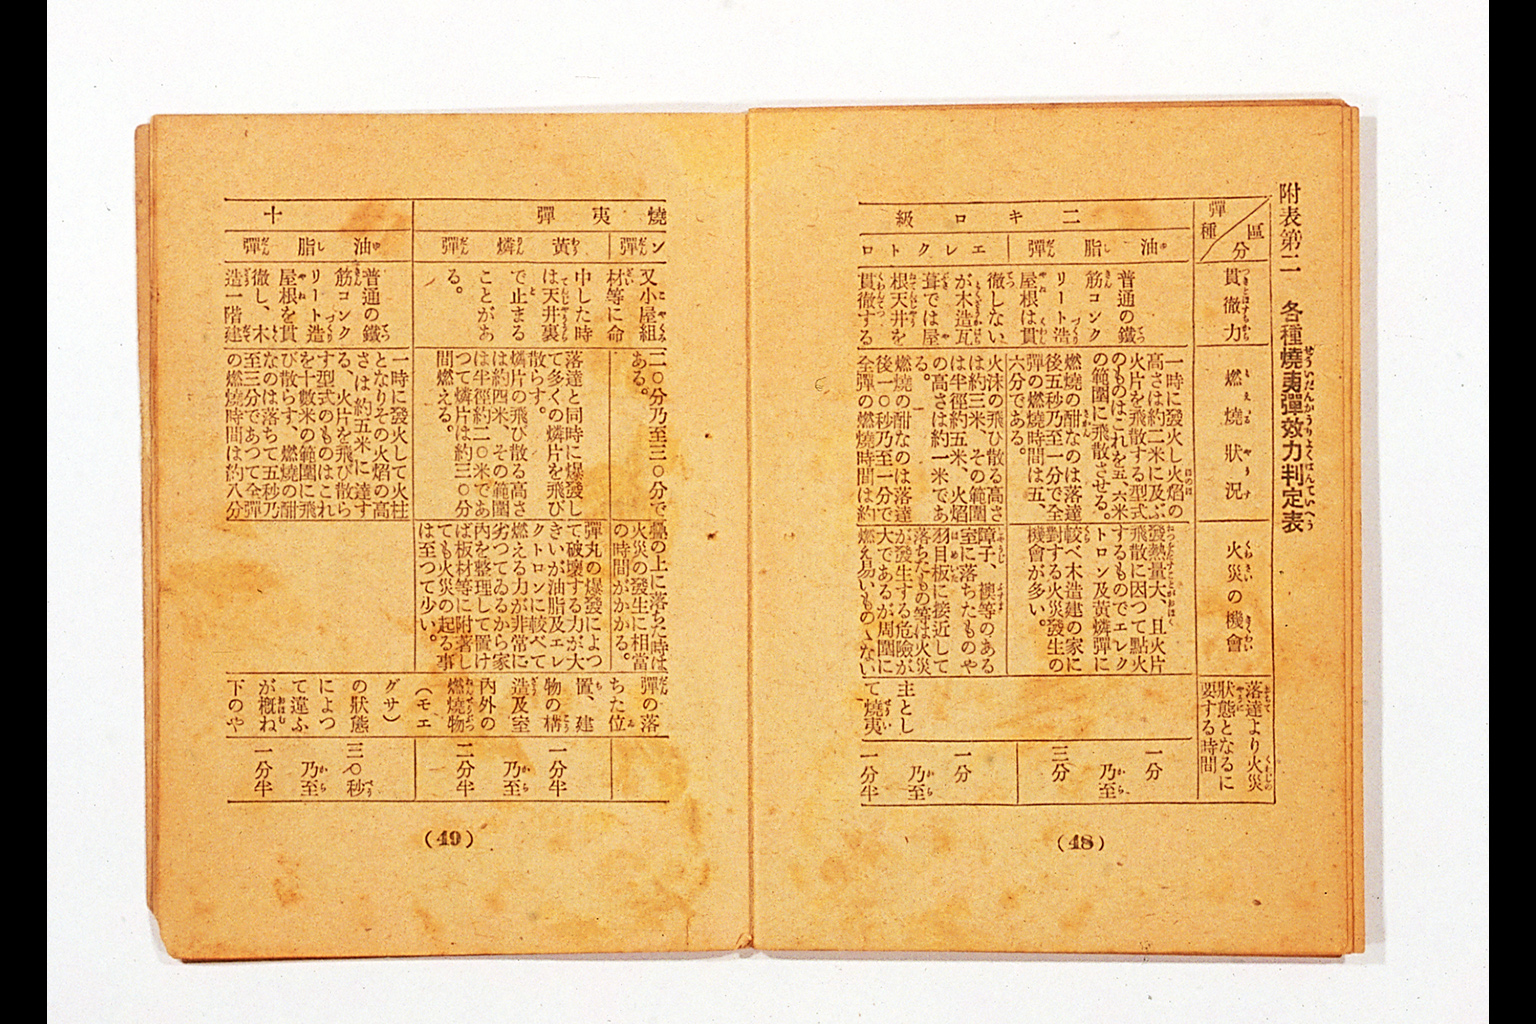 附表第二 各種燒夷彈效力判定表
彈種
區分
貫徹力
燃燒狀況
火災の機會
落達より火災
狀態となるに
要する時間
二キロ級
油脂彈
普通の鐵
筋コンク
リート造
屋根は貫
徹しない
一時に發火し火焰の
高さは約二米に及ぶ
火片を飛散する型式
のものはこれを五、六米
の範圍に飛散させる。
燃燒の酣なのは落達
後五秒乃至一分で全
彈の燃燒時間は五、
六分である。
發熱量大、且火片
飛散に因つて點火
するものでエレク
トロン及黃燐彈に
較べ木造建の家に
對する火災發生の
機會が多い。
一分
乃至
三分
エレクトロ
が木造瓦
葺では屋
根天井を
貫徹する
火沫の飛び散る高さ
は約三米、その範圍
は半徑約五米、火焰
の高さは約一米であ
る。
燃燒の酣なのは落達
後一〇秒乃至一分で
全彈の燃燒時間は約
障子、襖等のある
室に落ちたものや
羽目板に接近して
落ちたもの等は火災
が發生する危險が
大であるが周圍に
燃え易いものゝない
主とし
て燒夷
一分
乃至
一分半
(48)
燒夷彈
ン彈
又小屋組
材等に命
中した時
は天井裏
で止まる
ことがあ
る。
二〇分乃至三〇分で
ある。
疊の上に落ちた時は
火災の發生に相當
の時間がかかる。
彈の落
ちた位
置、建
物の構
造及室
內外の
燃燒物
(モエ
グサ)
の狀態
によつ
て違ふ
が槪ね
下のや
黃燐彈
落達と同時に爆發し
て多くの燐片を飛び
散らす。
燐片の飛び散る高さ
は約四米、その範圍
は半徑約二〇米であ
つて燐片は約三〇分
間燃える。
彈丸の爆發によつ
て破壞する力が大
きいが油脂及エレ
クトロンに較べて
燃える力が非常に
劣つてゐるから家
內を整理して置け
ば板材等に附著し
ても火災の起る事
は至つて少い。
一分半
乃至
二分半
十
油脂彈
普通の鐵
筋コンク
リート造
屋根を貫
徹し、木
造一階建
一時に發火して火柱
となりその火焰の高
さは約五米に達す
る、火片を飛び散ら
す型式のものはこれ
を十數米の範圍に飛
び散らす、燃燒の酣
なのは落ちて五秒乃
至三分であつて全彈
の燃燒時間は約八分
三〇秒
乃至
一分半
(49)